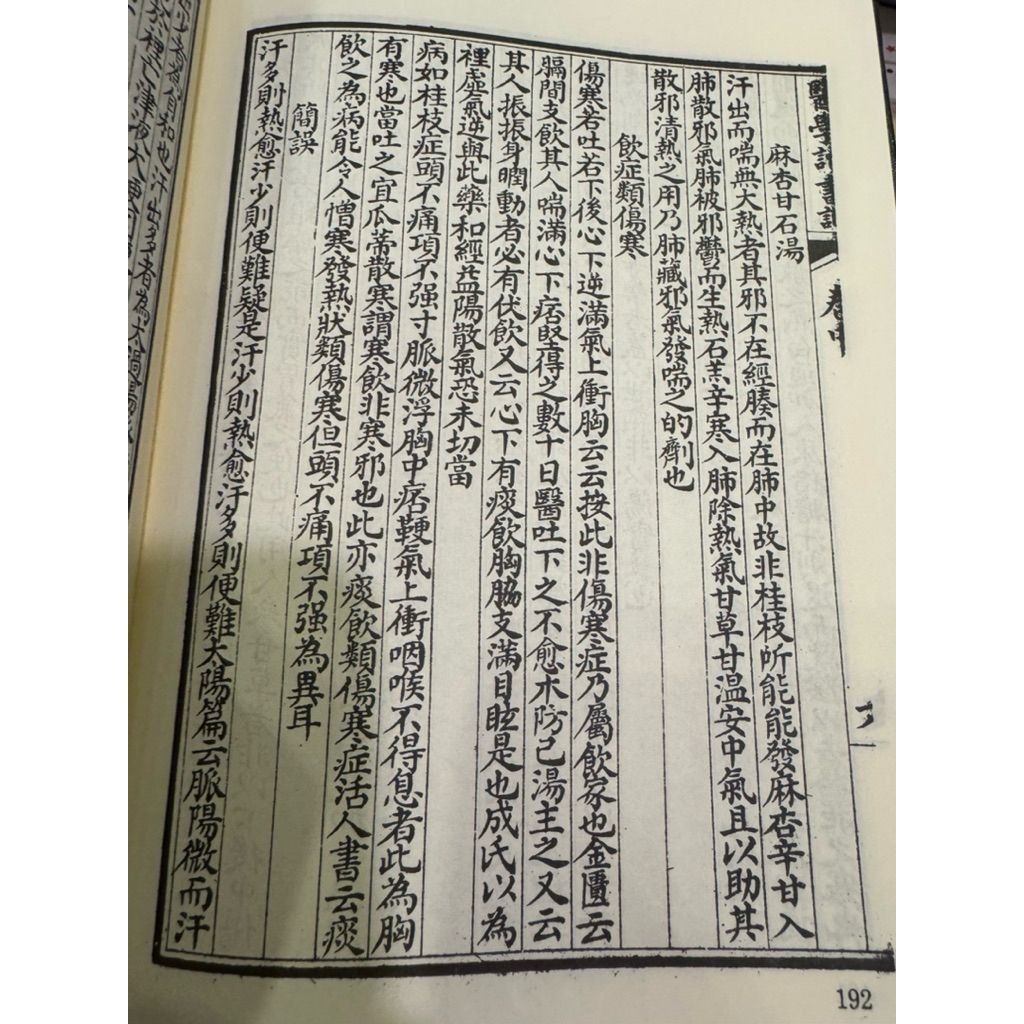 醫學讀書記
卷中
麻杏甘石湯
汗出而喘無大熱者其邪不在經腠而在肺中故非桂枝所能能發麻杏辛甘入
肺散邪氣肺被邪鬱而生熱石羔辛寒入肺除熱氣甘草甘溫安中氣且以助其
散邪清熱之用乃肺藏邪氣發喘之的劑也
飲症類傷寒
傷寒若吐若下後心下逆滿氣上衝胸云云按此非傷寒症乃屬飲家也金匱云
膈間支飲其人喘滿心下痞堅得之數十日醫吐下之不愈木防己湯主之又云
其人振振身瞤動者必有伏飲又云心下有痰飲胸脇支滿目眩是也成氏以為
裡虛氣逆與此藥和經益陽散氣恐未切當
病如桂枝症頭不痛項不强寸脈微浮胸中痞鞕氣上衝咽喉不得息者此為胸
有寒也當吐之宜瓜蒂散寒謂寒飲非寒邪也此亦痰飲類傷寒症活人書云痰
飲之為病能令人憎寒發熱狀類傷寒但頭不痛項不强為異耳
簡誤
汗多則熱愈汗少則便難疑是汗少則熱愈汗多則便難太陽篇云脈陽微而汗
192
汗出多者為太過